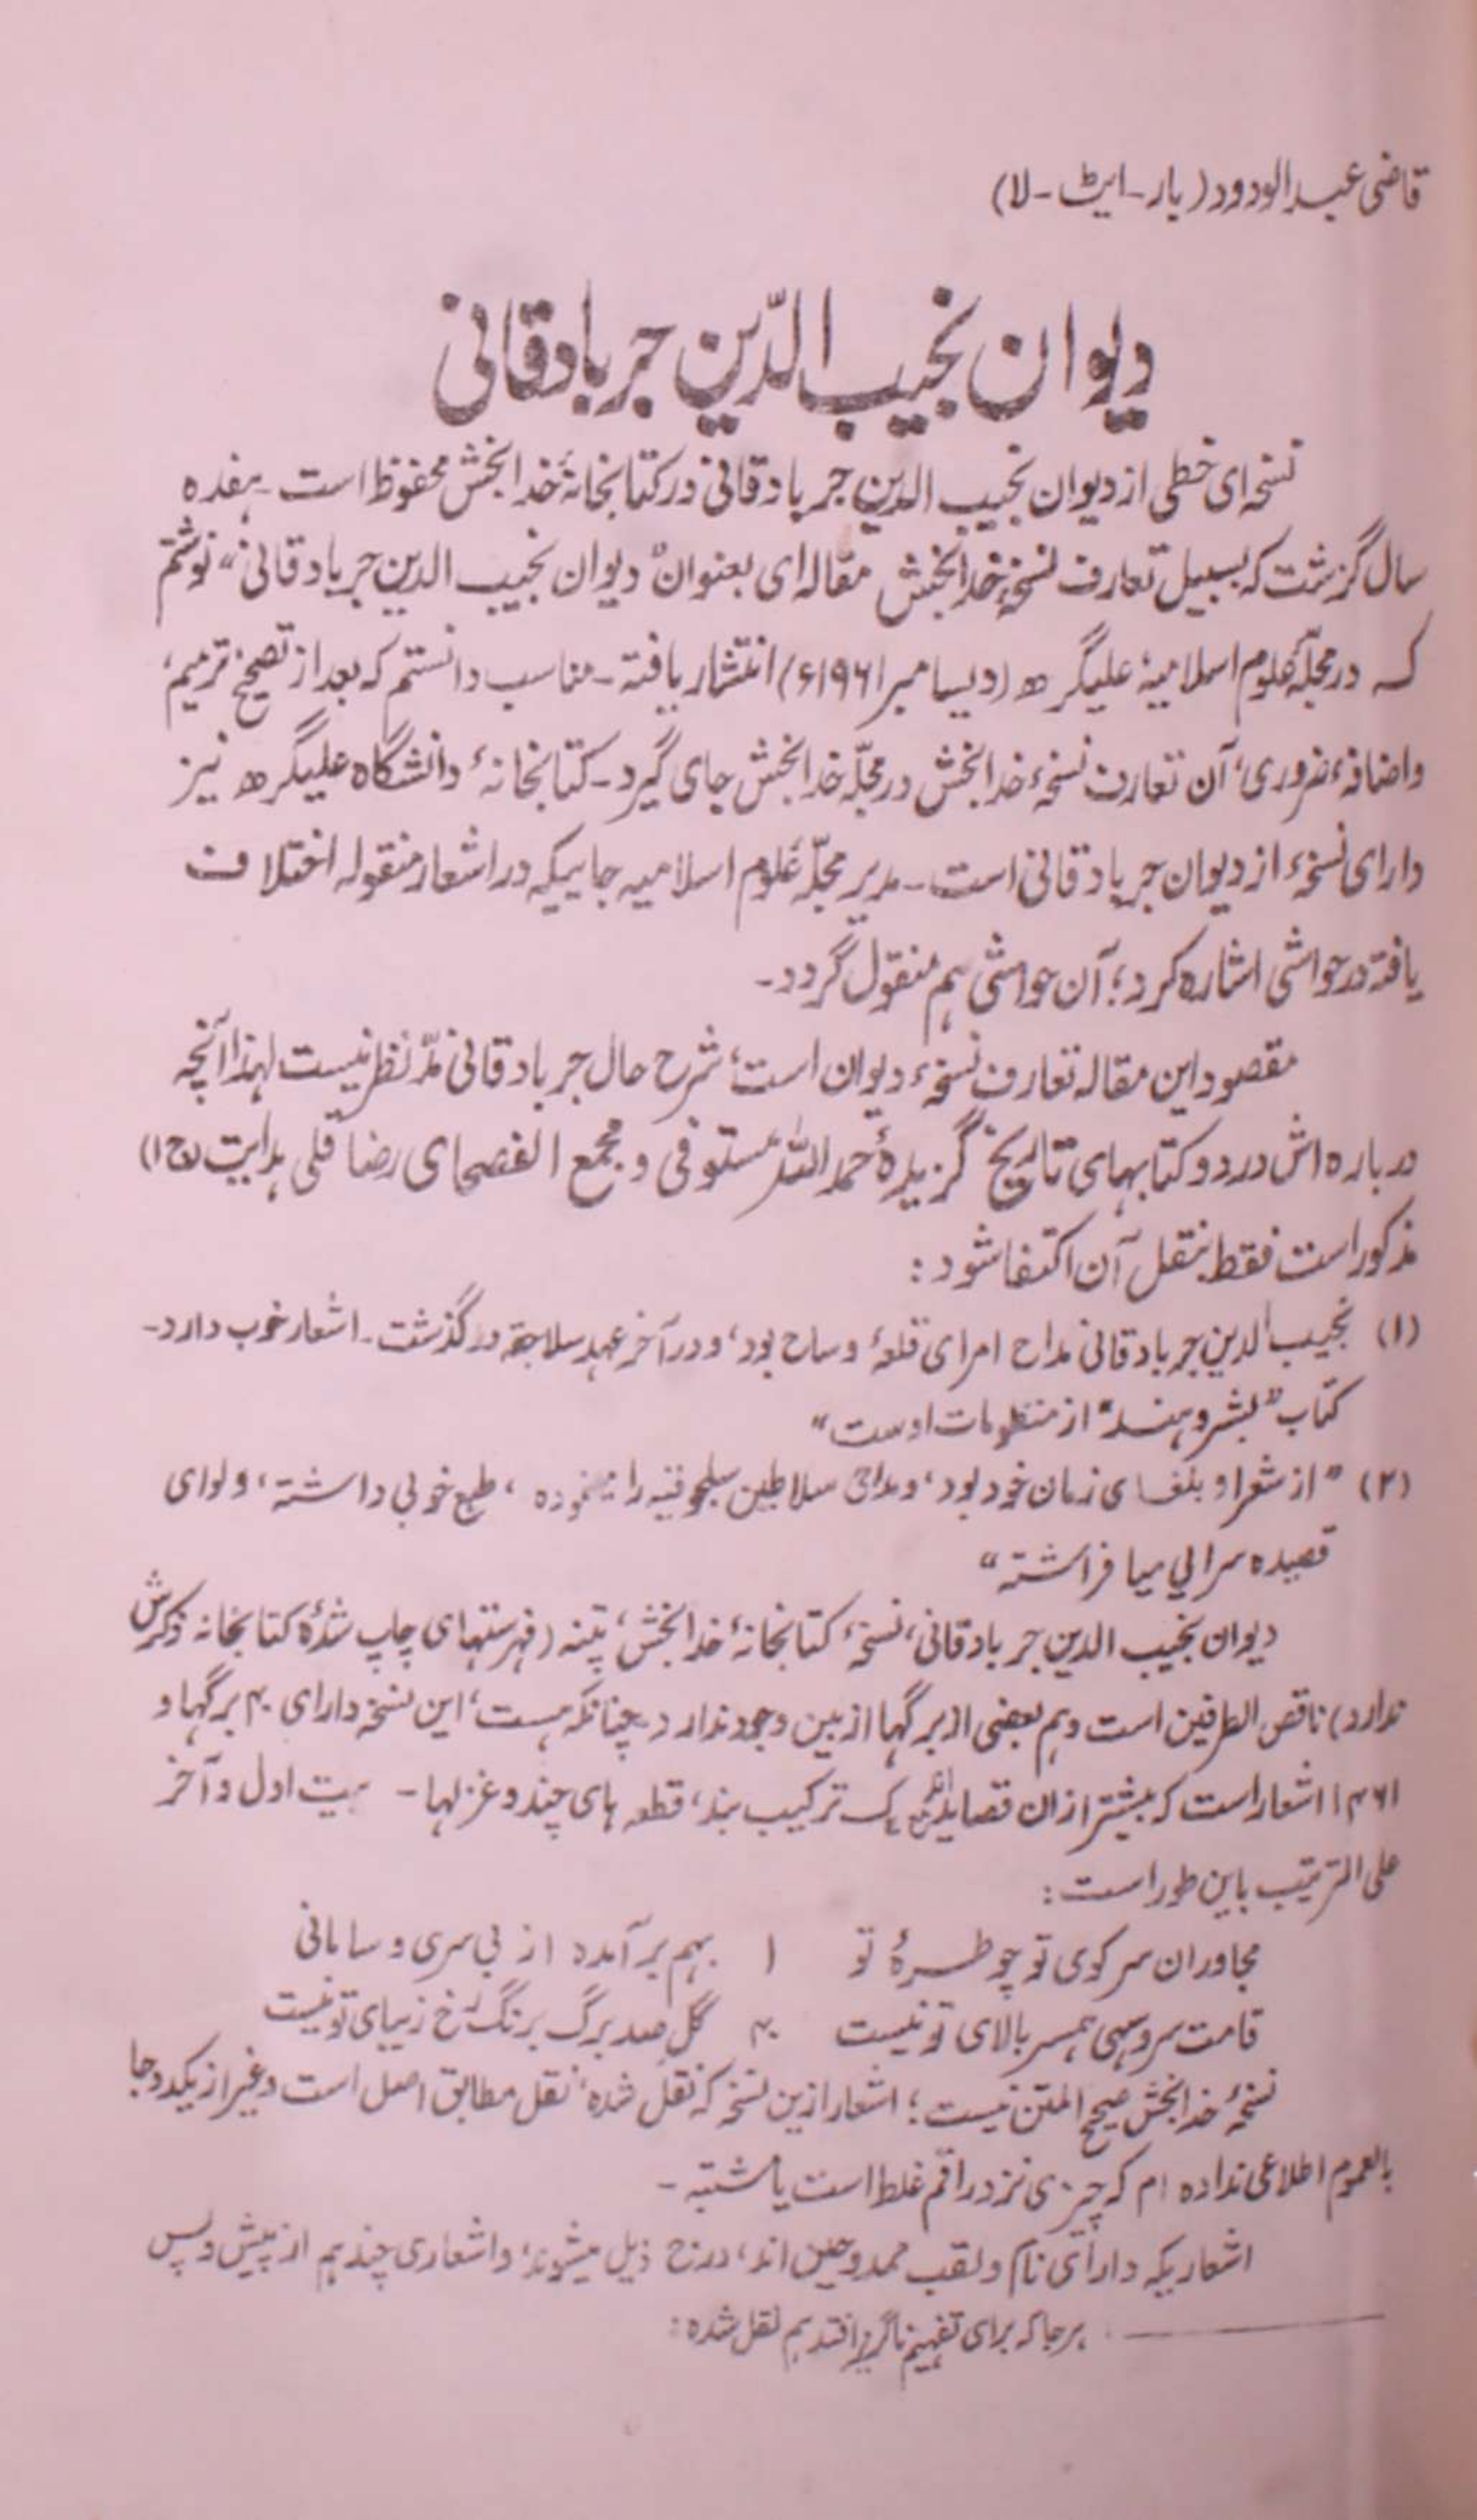 قاضی عبدالودود (بار-ایٹ-لا)
دیوان نجیب الدّین جربادقانی
نسخه‌ای خطی از دیوان نجیب الدین جربادقانی در کتابخانهٔ خدابخش محفوظ است - هفده
سال گزشت که بسبیل تعارف نسخۂ خدابخش مقاله‌ای بعنوان "دیوان نجیب الدین جربادقانی" نوشتم
که در مجلّهٔ علوم اسلامیهٔ علیگرھ (دیسامبر ۱۹۶۱ء) انتشار یافته - مناسب دانستم که بعد از تصحیح، ترمیم،
و اضافهٔ ضروری، آن تعارف نسخهٔ خدابخش در مجلّه خدابخش جای گیرد - کتابخانهٔ دانشگاه علیگرھ نیز
دارای نسخهٔ از دیوان جربادقانی است - مدیر مجلّه علوم اسلامیه جاییکه در اشعار منقوله اختلاف
یافته در حواشی اشاره کرد؛ آن حواشی هم منقول گردد -
مقصود این مقاله تعارف نسخهٔ دیوان است، شرح حال جربادقانی مدّ نظر نیست لہذا آنچه
درباره‌اش در دو کتابهای تاریخ گزیدهٔ حمد اللہ مستوفی و مجمع الفصحای رضا قلی ہدایت (ج ۱)
مذکور است فقط بنقل آن اکتفا شود :
(۱) نجیب الدین جربادقانی مداح امرای قلعهٔ وساح بود، و در آخر عهد سلاجقه درگذشت - اشعار خوب دارد -
کتاب "بشر و ہند" از منظومات اوست"
(۲) "از شعرا و بلغای زمان خود بود، و مداحی سلاطین سلجوقیه را نموده، طبع خوبی داشته، و لوای
قصیده سرایی میافراشته"
دیوان نجیب الدین جربادقانی، نسخهٔ کتابخانهٔ خدابخش، پتنه (فهرستهای چاپ شدهٔ کتابخانه ذکرش
ندارد) ناقص الطرفین است و هم بعضی از برگها از بین وجود ندارد - چنانکه هست، این نسخه دارای ۴۰ برگها و
۱۴۶۱ اشعار است که بیشتر از ان قصاید یک ترکیب بند، قطعه های چند و غزلها - بیت اول و آخر
علی الترتیب باین طور است :
مجاوران سر کوی تو چو طرهٔ تو ۱ بهم بر آمده از بی سری و سامانی
قامت سرو سهی همسر بالای تو نیست ۴۰ گل صد برگ برنگ رخ زیبای تو نیست
نسخهٔ خدابخش صحیح المتن نیست؛ اشعار ازین نسخه که نقل شده، نقل مطابق اصل است و غیر از یکدوجا
بالعموم اطلاعی نداده ام که چیزی نزد راقم غلط است یا مشتبه -
اشعاریکه دارای نام و لقب ممدوحین اند، درج ذیل میشوند، و اشعاری چند هم از پیش و پس
هر جا که برای تفهیم ناگزیر افتد هم نقل شده :